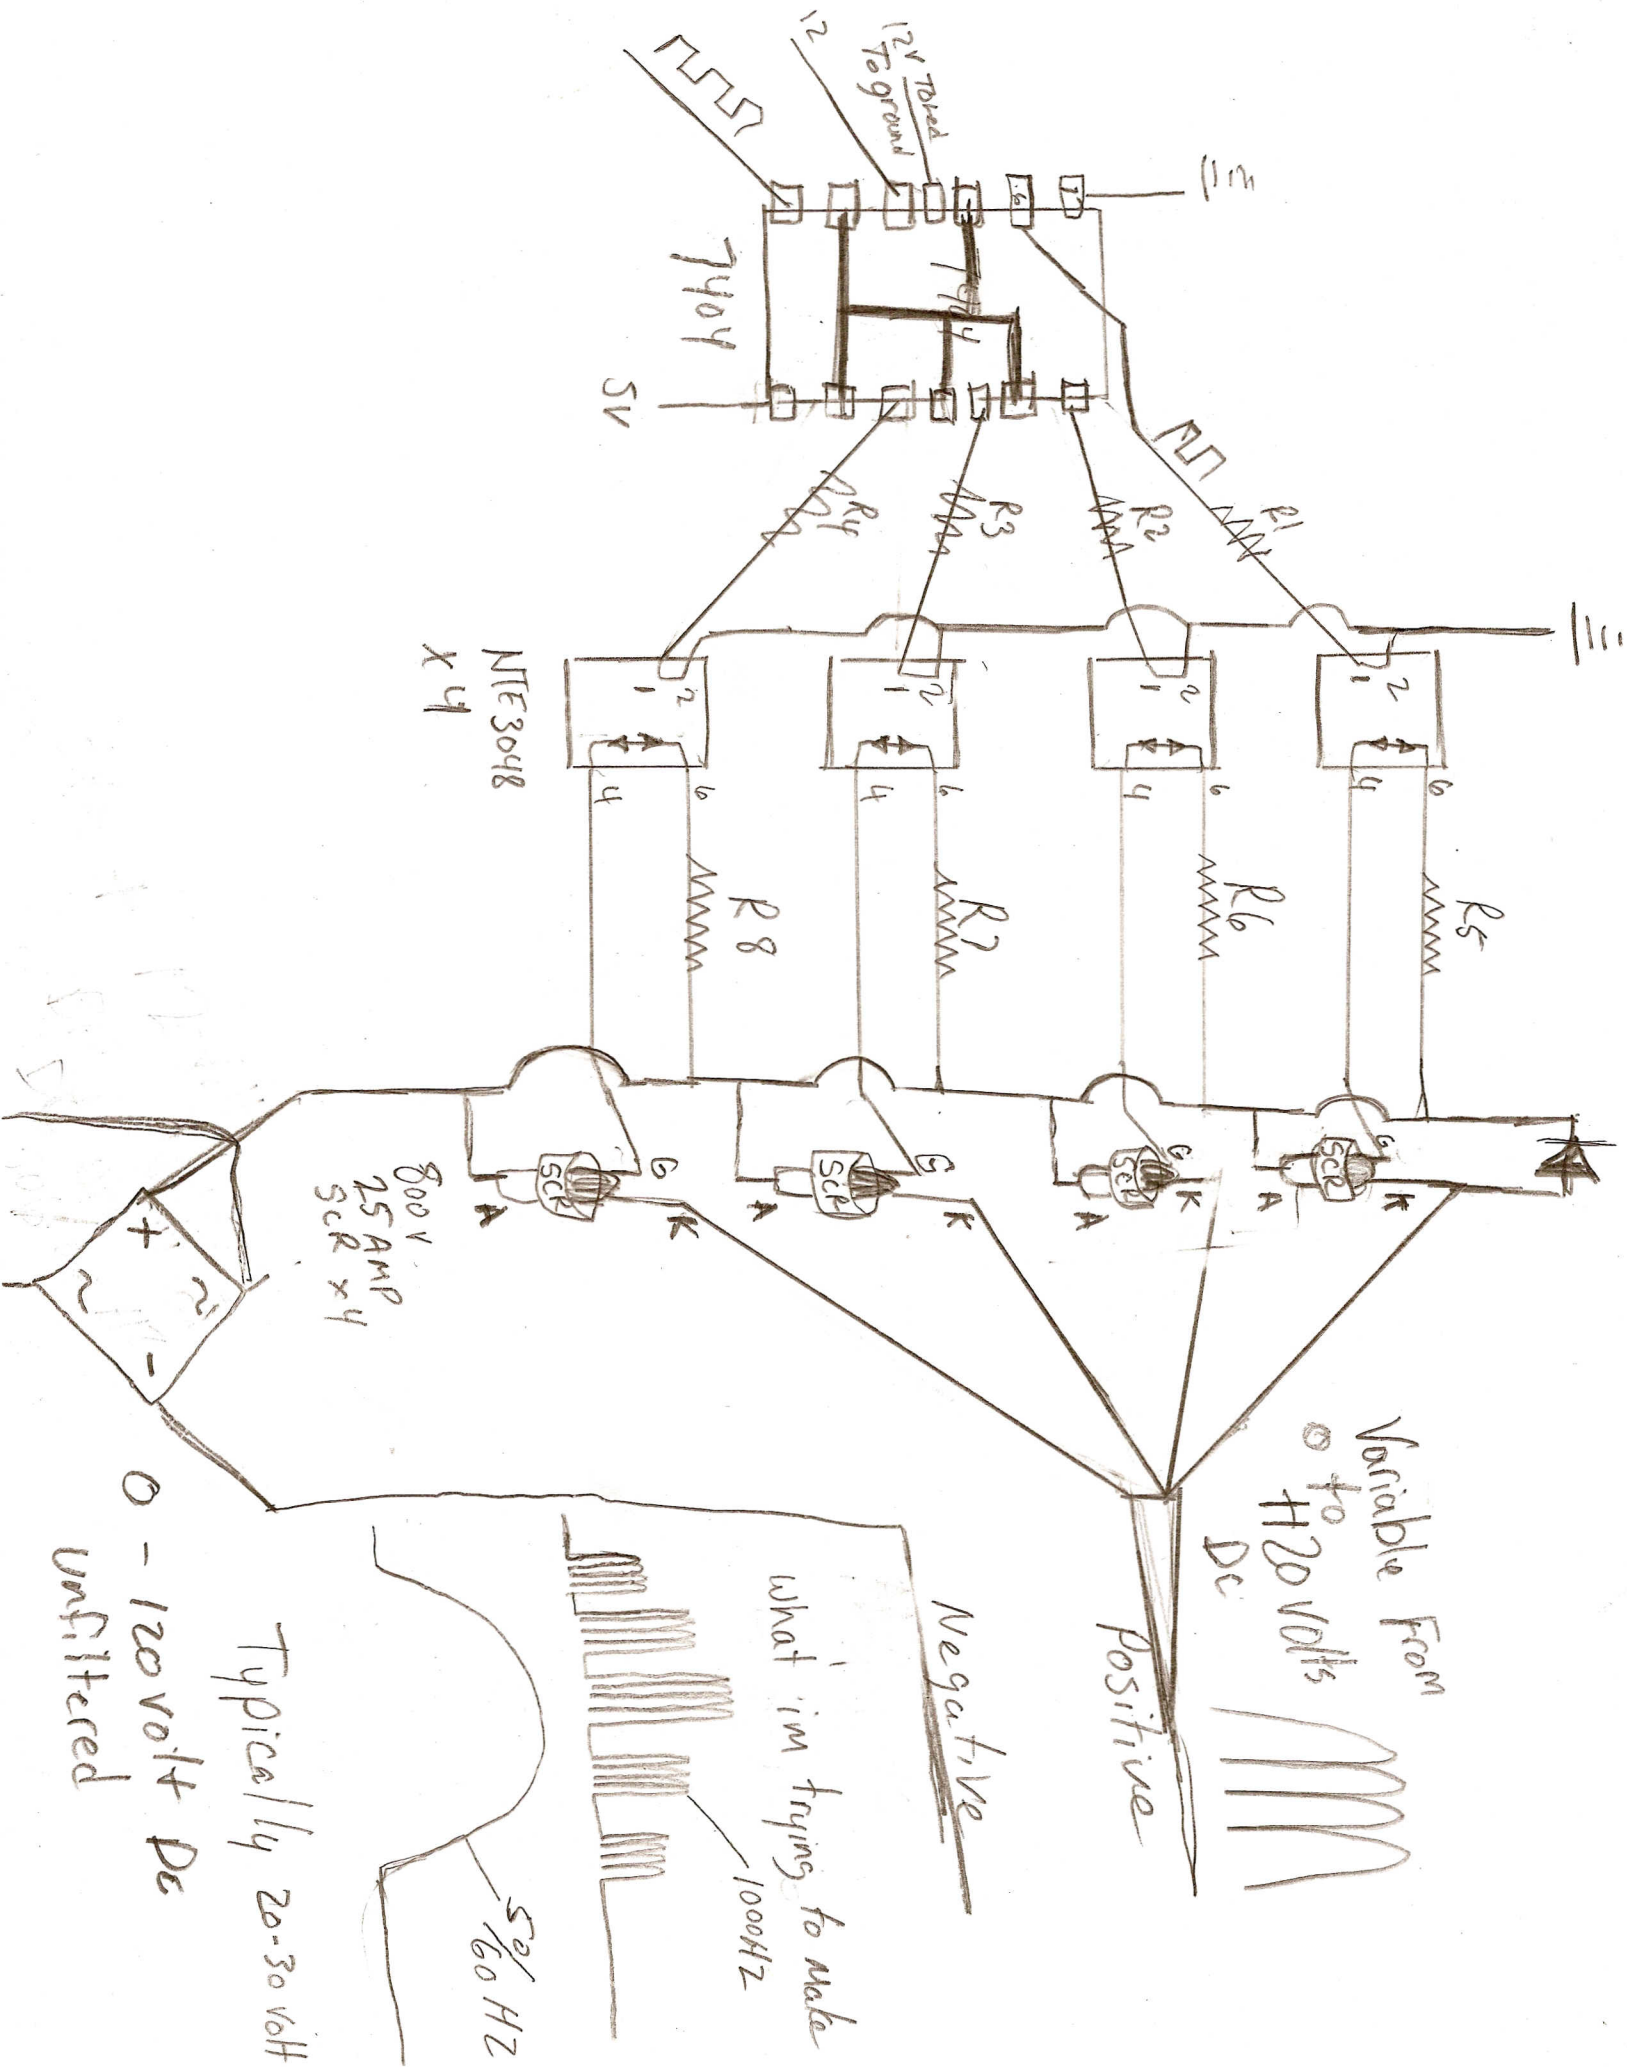 12
12v Toned
To ground
7404
7404
5v
6
7
R1
R2
R3
R4
1 2
1 2
1 2
1 2
4 6
4 6
4 6
4 6
NTE3048
X 4
R5
R6
R7
R8
SCR
SCR
SCR
SCR
G
G
G
G
A
A
A
A
K
K
K
K
800v
25 AMP
SCR x 4
+
-
~
~
Variable From
0 to
H20 volts
Dc
Positive
Negative
what im trying to make
1000HZ
50/
60 HZ
Typically 20-30 volt
0 - 120 volt Dc
unfiltered